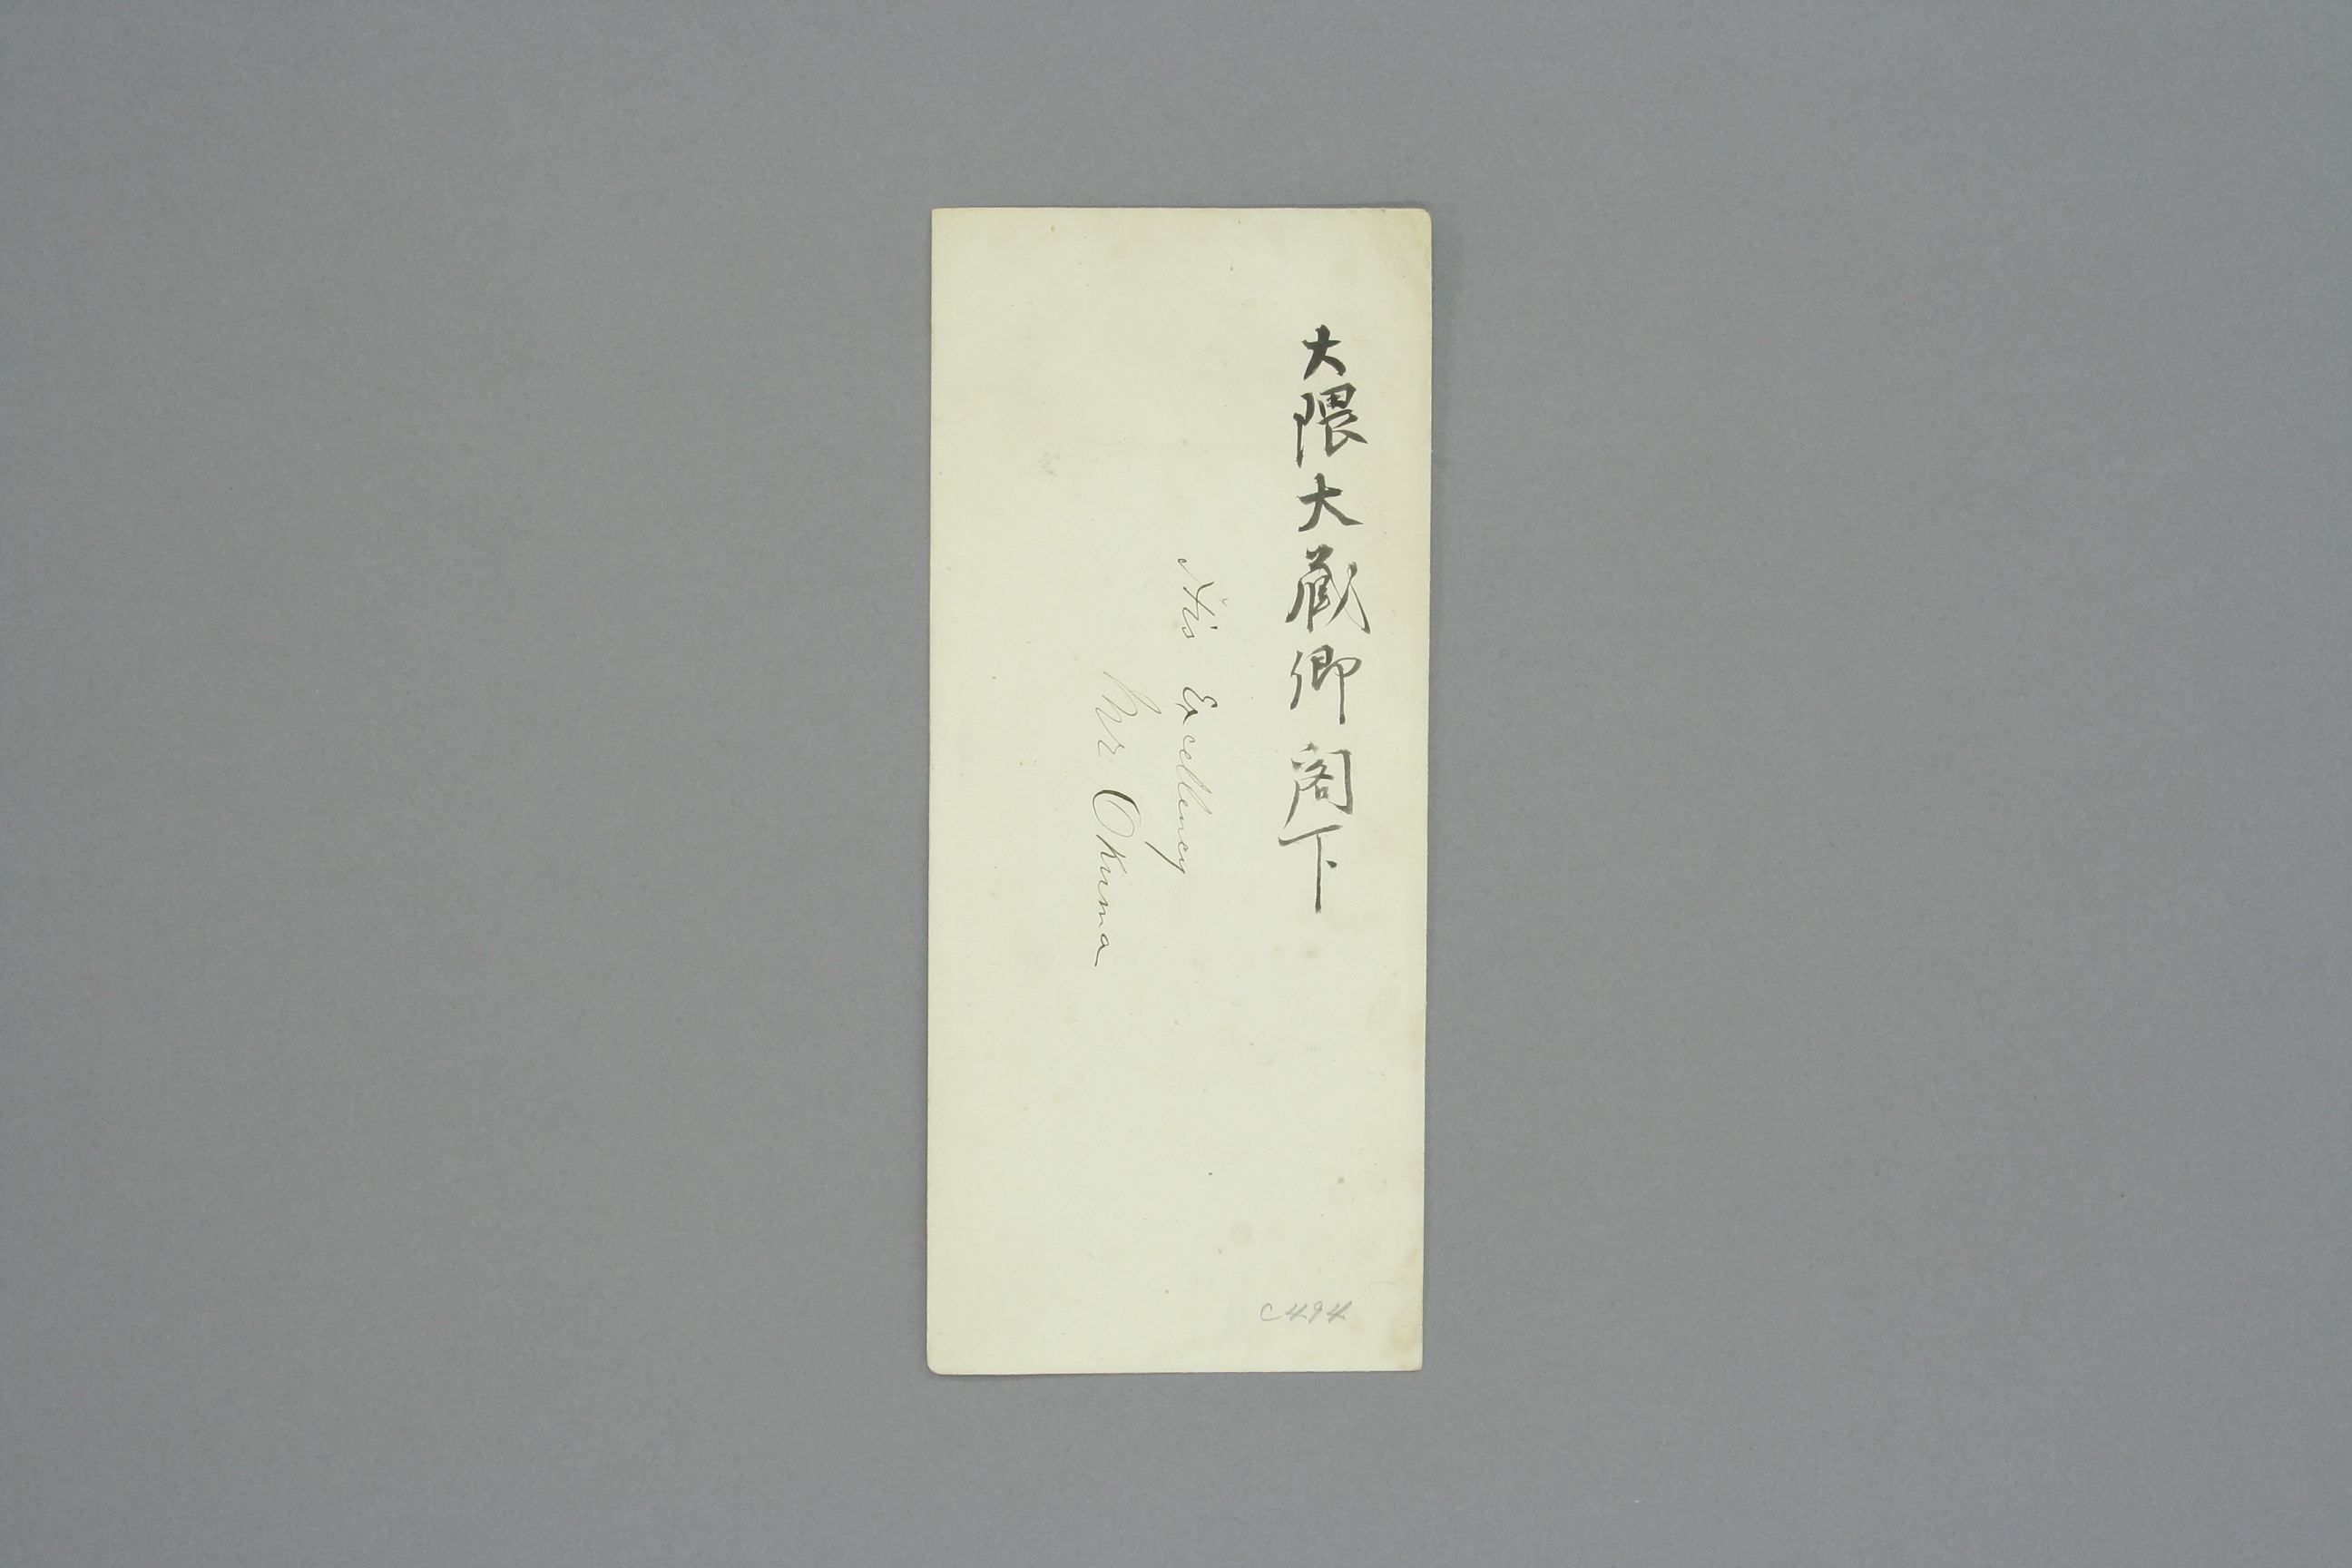 大隈大蔵卿閣下
His Excellency
Mr Okuma
C494